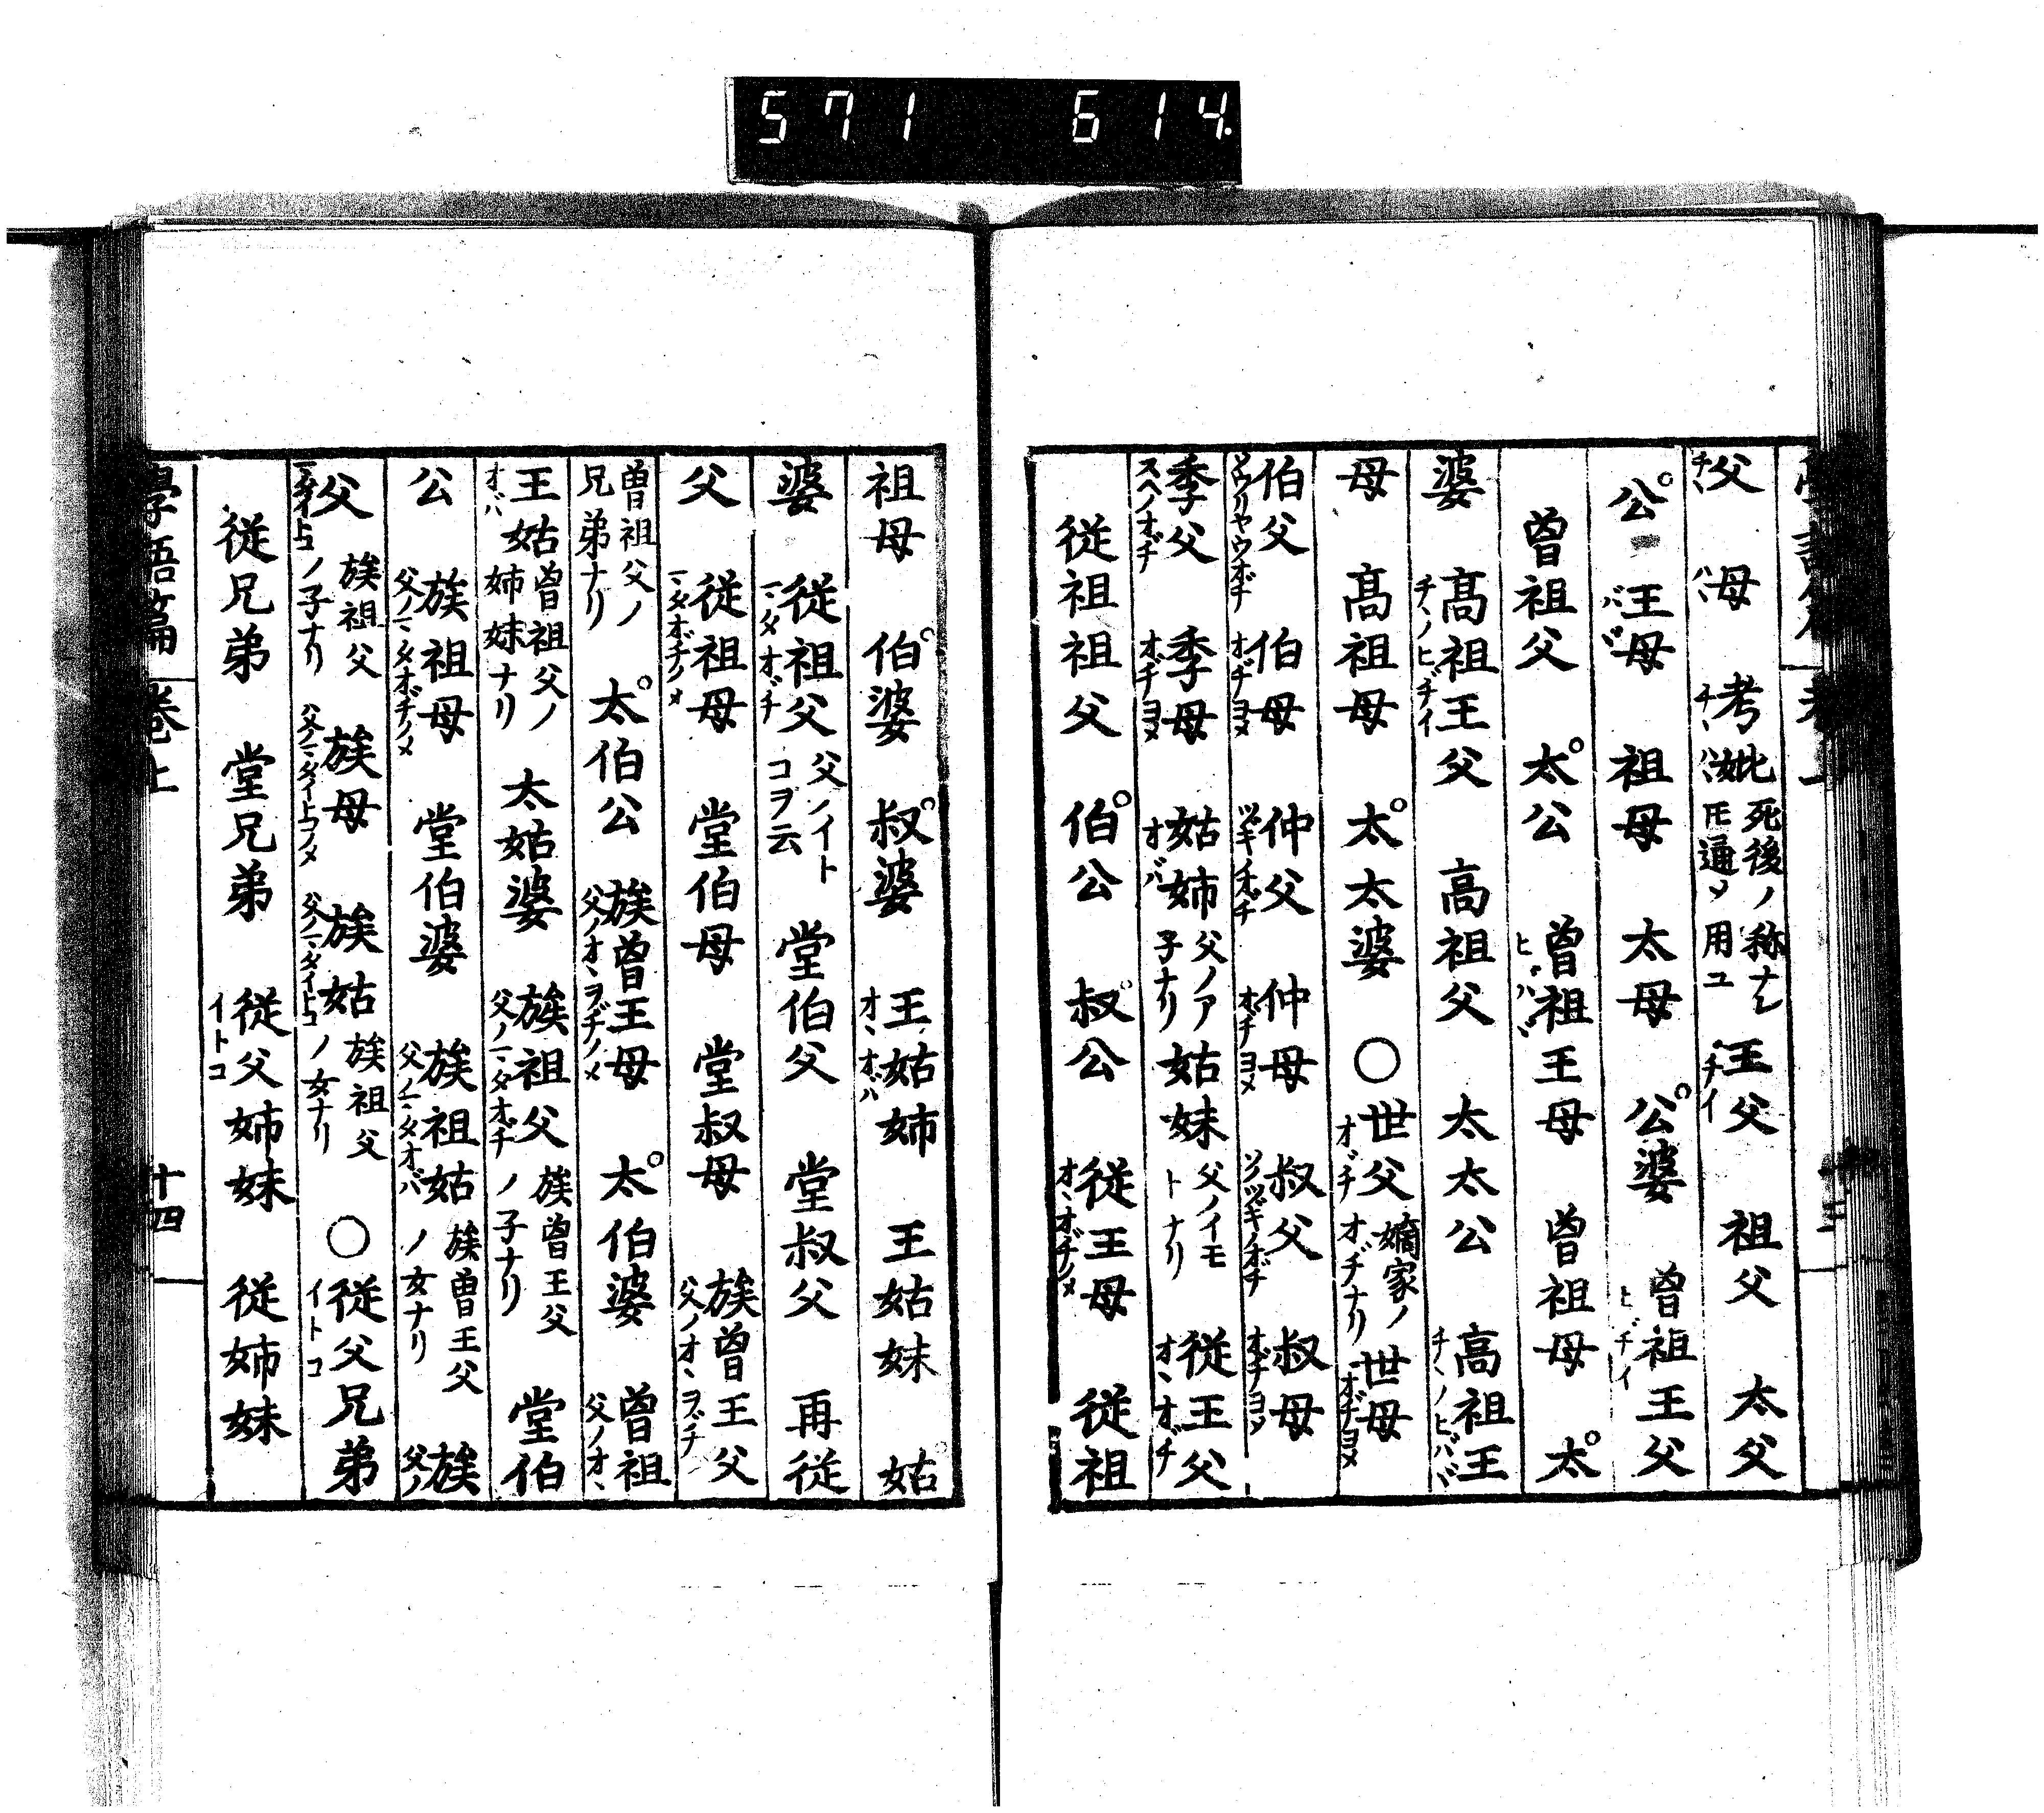 571 614.
父 母 考 妣 死後ノ称ナレ𪜈通メ用ユ 王父 祖父 太父
チヽ ハヽ チヽ ハヽ ヂイ
公 王母 祖母 太母 公婆 曽祖王父
バヾ ヒヂイ
曽祖父 太公 曽祖王母 曽祖母 太
ヒヾハヾ
婆 高祖王父 高祖父 太太公 高祖王
チヽノヒヂイ チヽノヒバヾ
母 高祖母 太太婆 〇世父 嫡家ノオヂナリ 世母
オヂ オヂヨメ
伯父 伯母 仲父 仲母 叔父 叔母
ソウリヤウオヂ オヂヨメ ツギノオヂ オヂヨメ ソノツギノオヂ オヂヨメ
季父 季母 姑姉 父ノアネ子ナリ 姑妹 父ノイモトナリ 従王父
スヘノオヂ オヂヨメ オバ オヽオヂ
従祖祖父 伯公 叔公 従王母 従祖
オヽオヂノメ
祖母 伯婆 叔婆 王姑姉 王姑妹 姑
オヽオバ
婆 従祖父 父ノイトコヲ云 堂伯父 堂叔父 再従
一タオヂ
父 従祖母 堂伯母 堂叔母 族曽王父
一タオヂノメ 父ノオヽヲヂ
曽祖父ノ兄弟ナリ 太伯公 族曽王母 太伯婆 曽祖
父ノオヽヲヂノメ 父ノオヽ
王姑 曽祖父ノ姉妹ナリ 太姑婆 族祖父 族曽王父ノ子ナリ 堂伯
オバ 父ノ一タオヂ
公 族祖母 堂伯婆 族祖姑 族曽王父ノ女ナリ 族
父ノ一タオヂノメ 父ノ一タオバ 父ノ
父 族祖父ノ子ナリ 族母 族姑 族祖父ノ女ナリ 〇従父兄弟
一タイトコ 父ノ一タイトコノメ 父ノ一タイトコ イトコ
従兄弟 堂兄弟 従父姉妹 従姉妹
イトコ
學語篇 巻上 十四